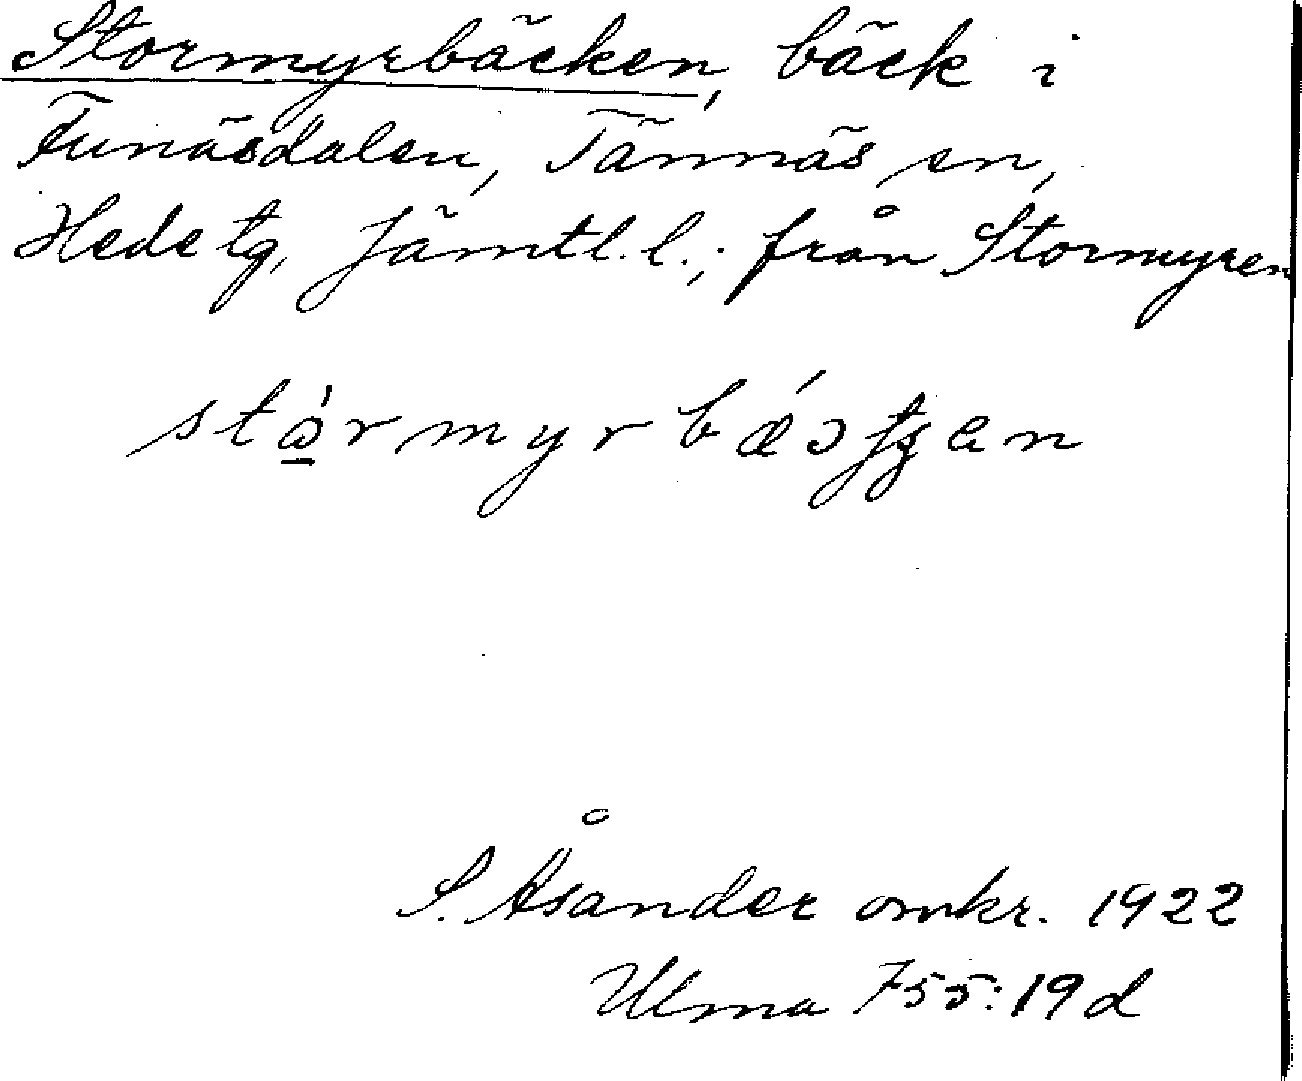 Stormyrbäcken, bäck i
Funäsdalen, Tännäs sn,
Hede tg, Jämtl. l.; från Stormyren
S. Åsander omkr. 1922
Ulma 755:19d